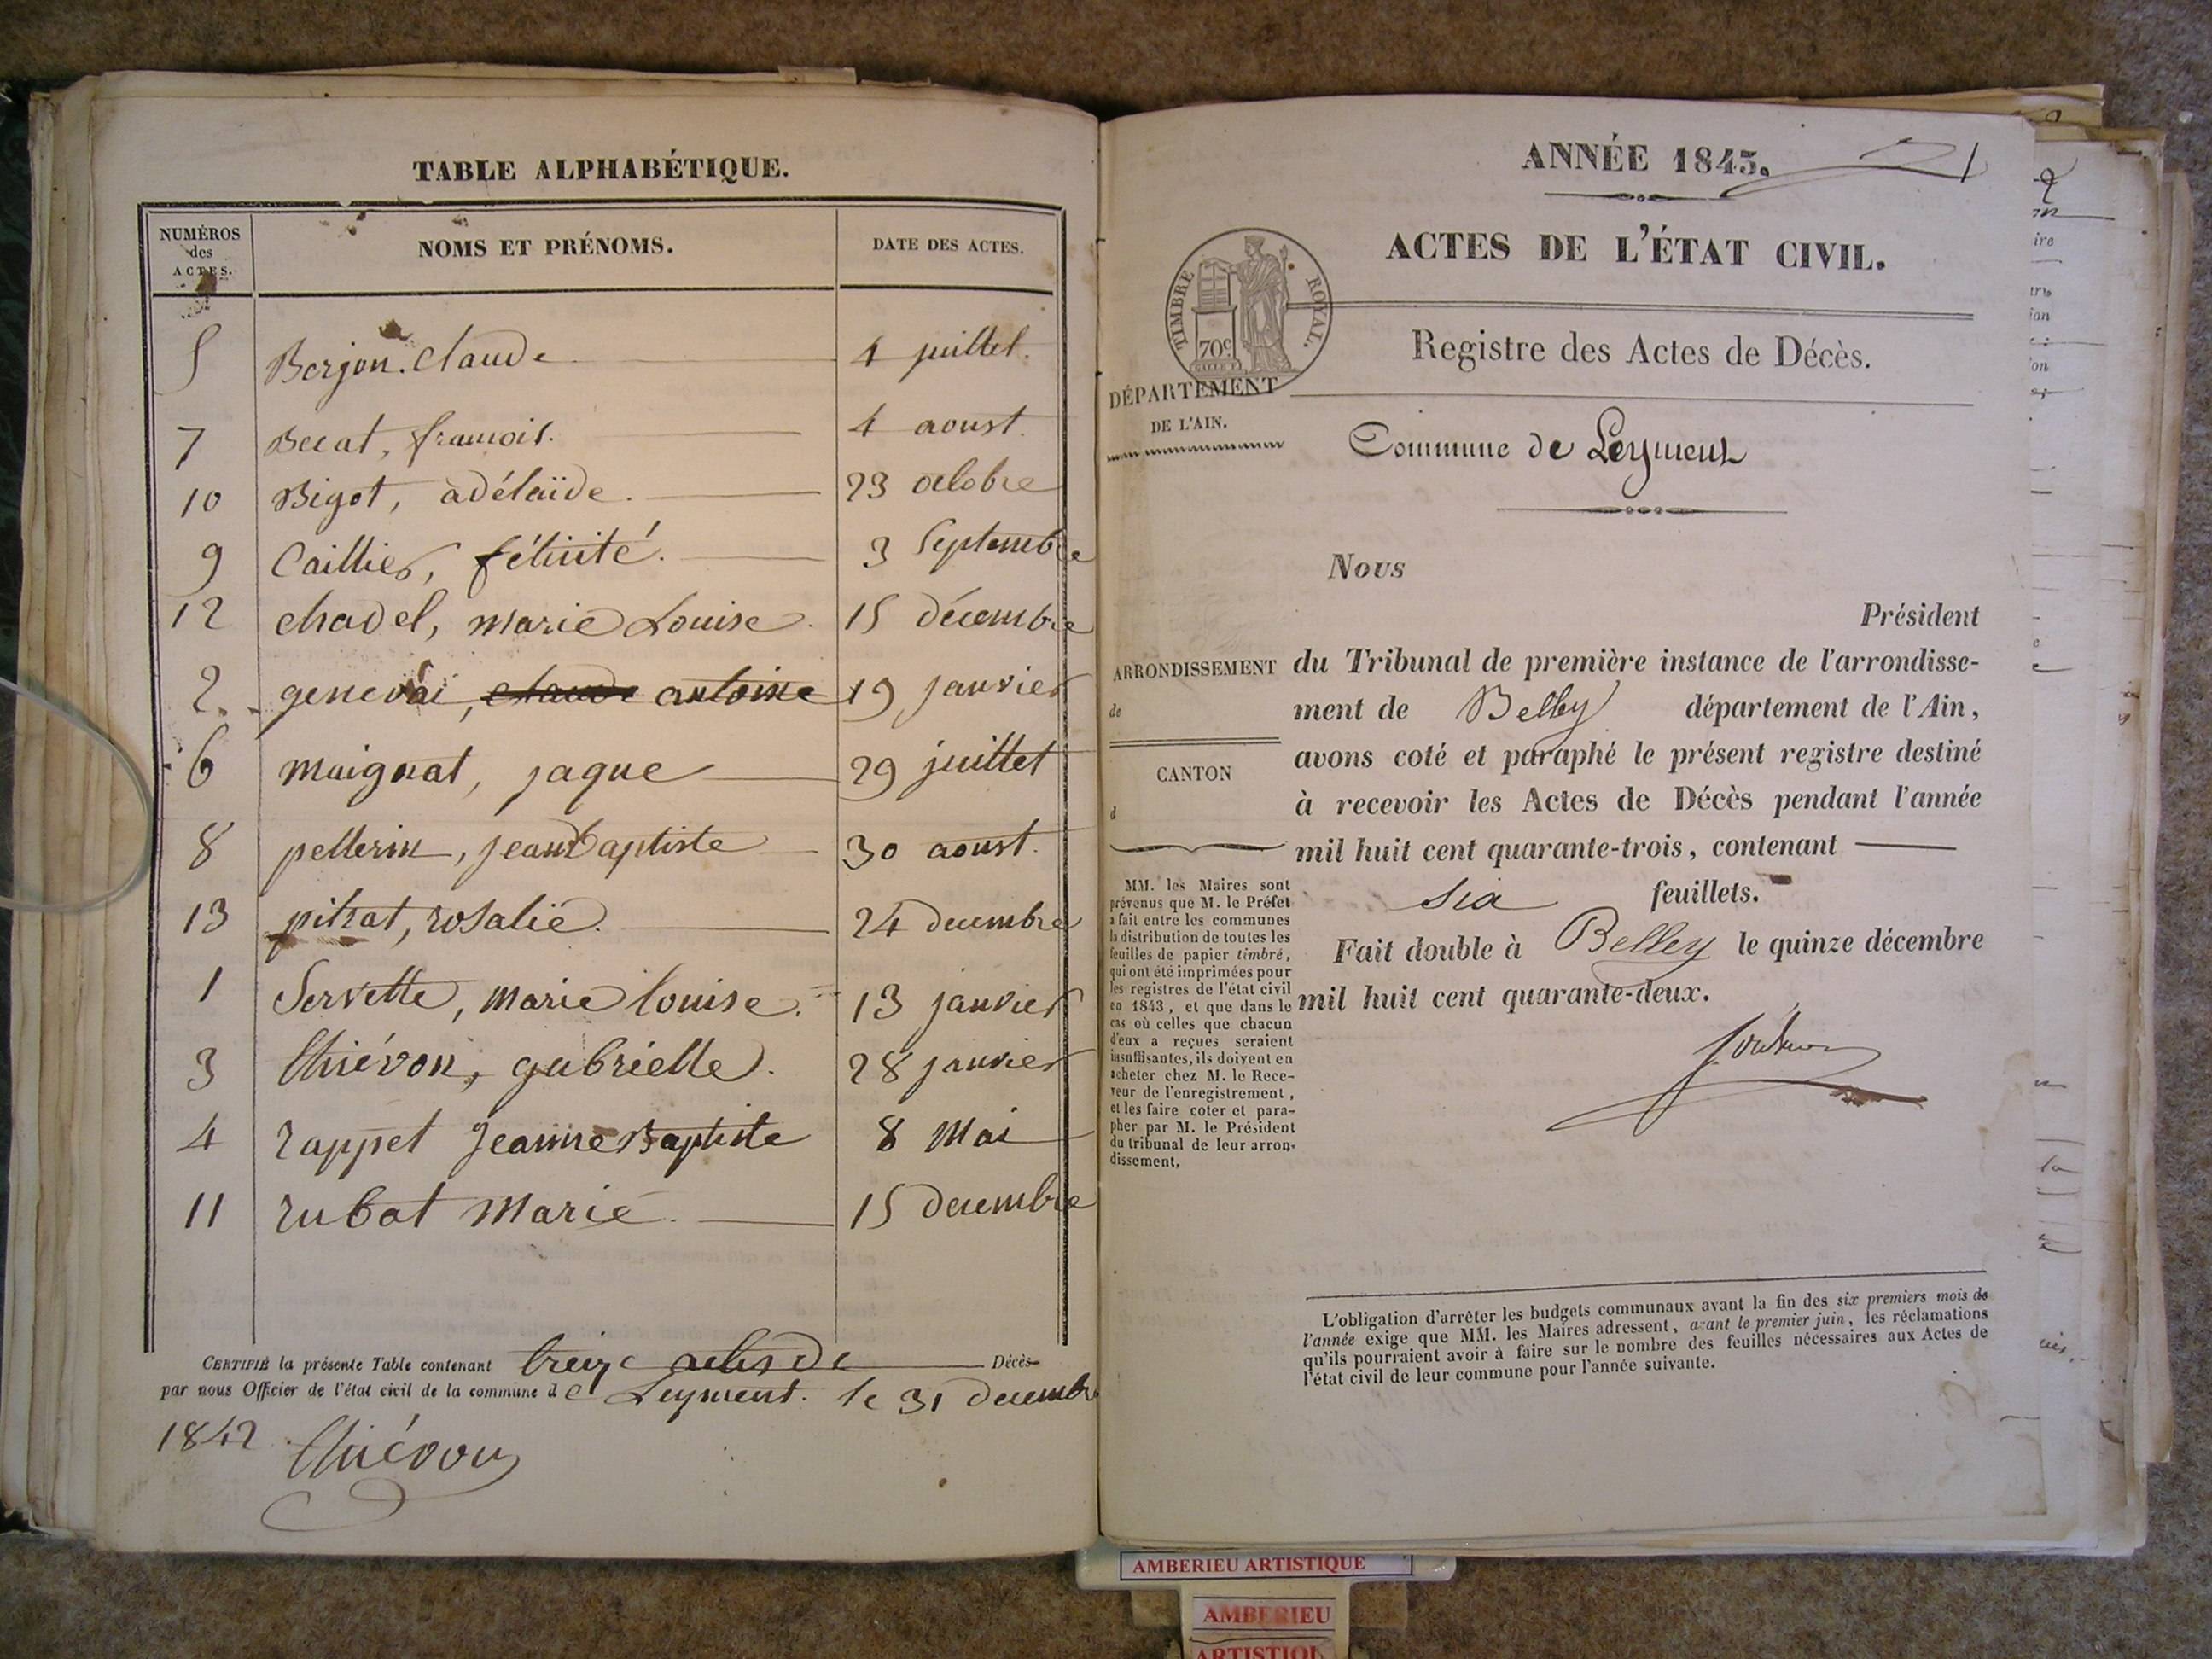 TABLE ALPHABÉTIQUE.
NUMÉROS des ACTES. NOMS ET PRÉNOMS. DATE DES ACTES.
5 Berjon. Claude 4 juillet.
7 Becat, francois. 4 aoust.
10 Bigot, adélaïde. 23 octobre
9 Caillier, félicité. 3 Septembre
12 chadel, marie Louise. 15 décembre
2 genevai, claude antoine 19 janvier
6 maignat, jaque 29 juillet
8 pellerin, jean baptiste 30 aoust.
13 pitrat, rosalie. 24 decembre
1 Servette, marie louise. 13 janvier
3 thiévon, gabrielle. 28 janvier
4 rappet jeanne Baptiste 8 mai
11 rubat marie. 15 decembre
CERTIFIÉ la présente Table contenant treize actes de Décès
par nous Officier de l'état civil de la commune de Leyment. le 31 decembre
1842
thiévon
ANNÉE 1843. 1
ACTES DE L'ÉTAT CIVIL.
TIMBRE ROYAL.
70c
Registre des Actes de Décès.
DÉPARTEMENT
DE L'AIN.
Commune de Leyment
Nous
Président
ARRONDISSEMENT
de
CANTON
d
du Tribunal de première instance de l'arrondisse-
ment de Belley département de l'Ain,
avons coté et paraphé le présent registre destiné
à recevoir les Actes de Décès pendant l'année
mil huit cent quarante-trois, contenant
six feuillets.
Fait double à Belley le quinze décembre
mil huit cent quarante-deux.
MM. les Maires sont
prévenus que M. le Préfet
a fait entre les communes
la distribution de toutes les
feuilles de papier timbré,
qui ont été imprimées pour
les registres de l'état civil
en 1843, et que dans le
cas où celles que chacun
d'eux a reçues seraient
insuffisantes, ils doivent en
acheter chez M. le Rece-
veur de l'enregistrement,
et les faire coter et para-
pher par M. le Président
du tribunal de leur arron-
dissement,
L'obligation d'arrêter les budgets communaux avant la fin des six premiers mois de
l'année exige que MM. les Maires adressent, avant le premier juin, les réclamations
qu'ils pourraient avoir à faire sur le nombre des feuilles nécessaires aux Actes de
l'état civil de leur commune pour l'année suivante.
AMBERIEU ARTISTIQUE
AMBERIEU